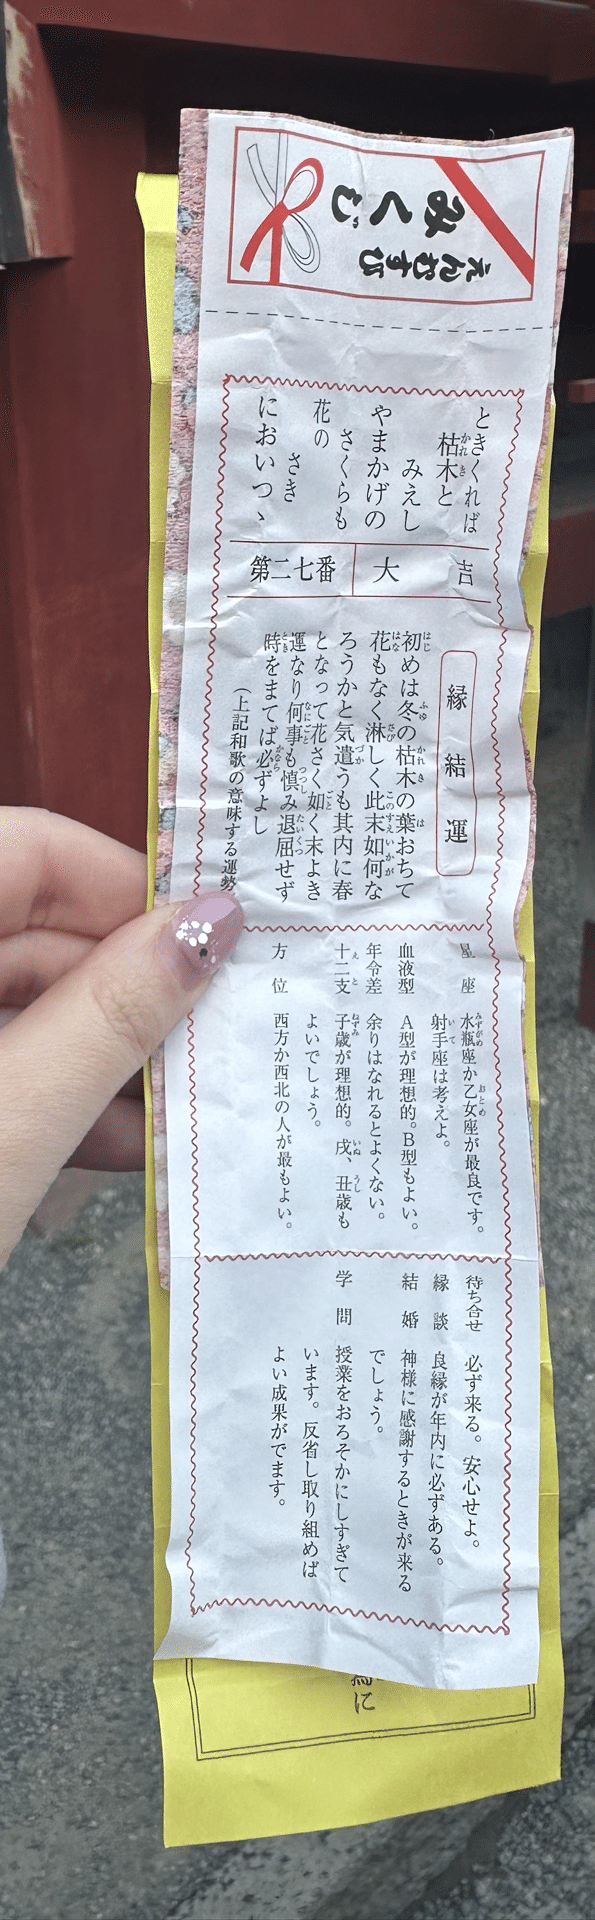 えんむすび
みくじ
ときくれば
枯木と
みえし
やまかげの
さくらも
花の
さき
においつゝ
大吉
第二七番
縁結運
初めは冬の枯木の葉おちて
花もなく淋しく此末如何な
ろうかと気遣うも其内に春
となって花さく如く末よき
運なり何事も慎み退屈せず
時をまてば必ずよし
(上記和歌の意味する運勢
星座 水瓶座か乙女座が最良です。
射手座は考えよ。
血液型 A型が理想的。B型もよい。
年令差 余りはなれるとよくない。
十二支 子歳が理想的。戌、丑歳も
よいでしょう。
方位 西方か西北の人が最もよい。
待ち合せ 必ず来る。安心せよ。
縁談 良縁が年内に必ずある。
結婚 神様に感謝するときが来る
でしょう。
学問 授業をおろそかにしすぎて
います。反省し取り組めば
よい成果がでます。
に